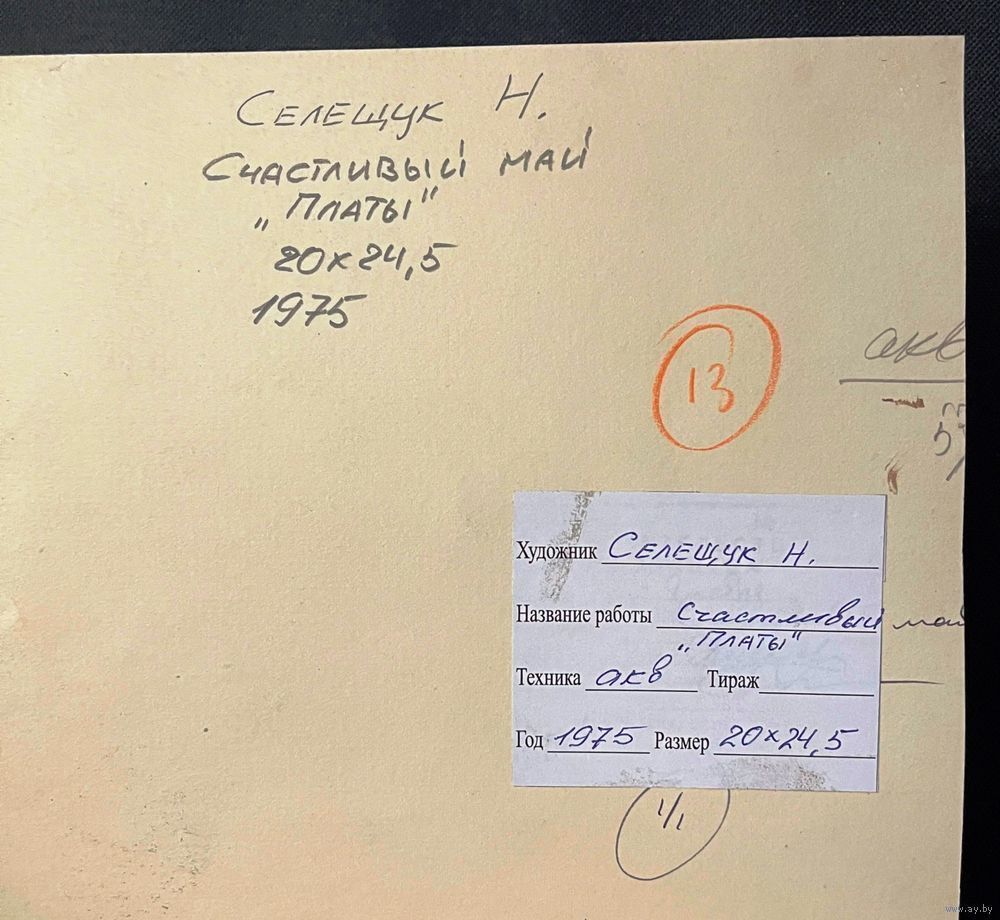 Селещук Н.
Счастливый май
„Платы"
20х24,5
1975
13
акв
Художник Селещук Н.
Название работы Счастливый май
„Платы"
Техника акв Тираж
Год 1975 Размер 20х24,5
1/1
www.ay.by